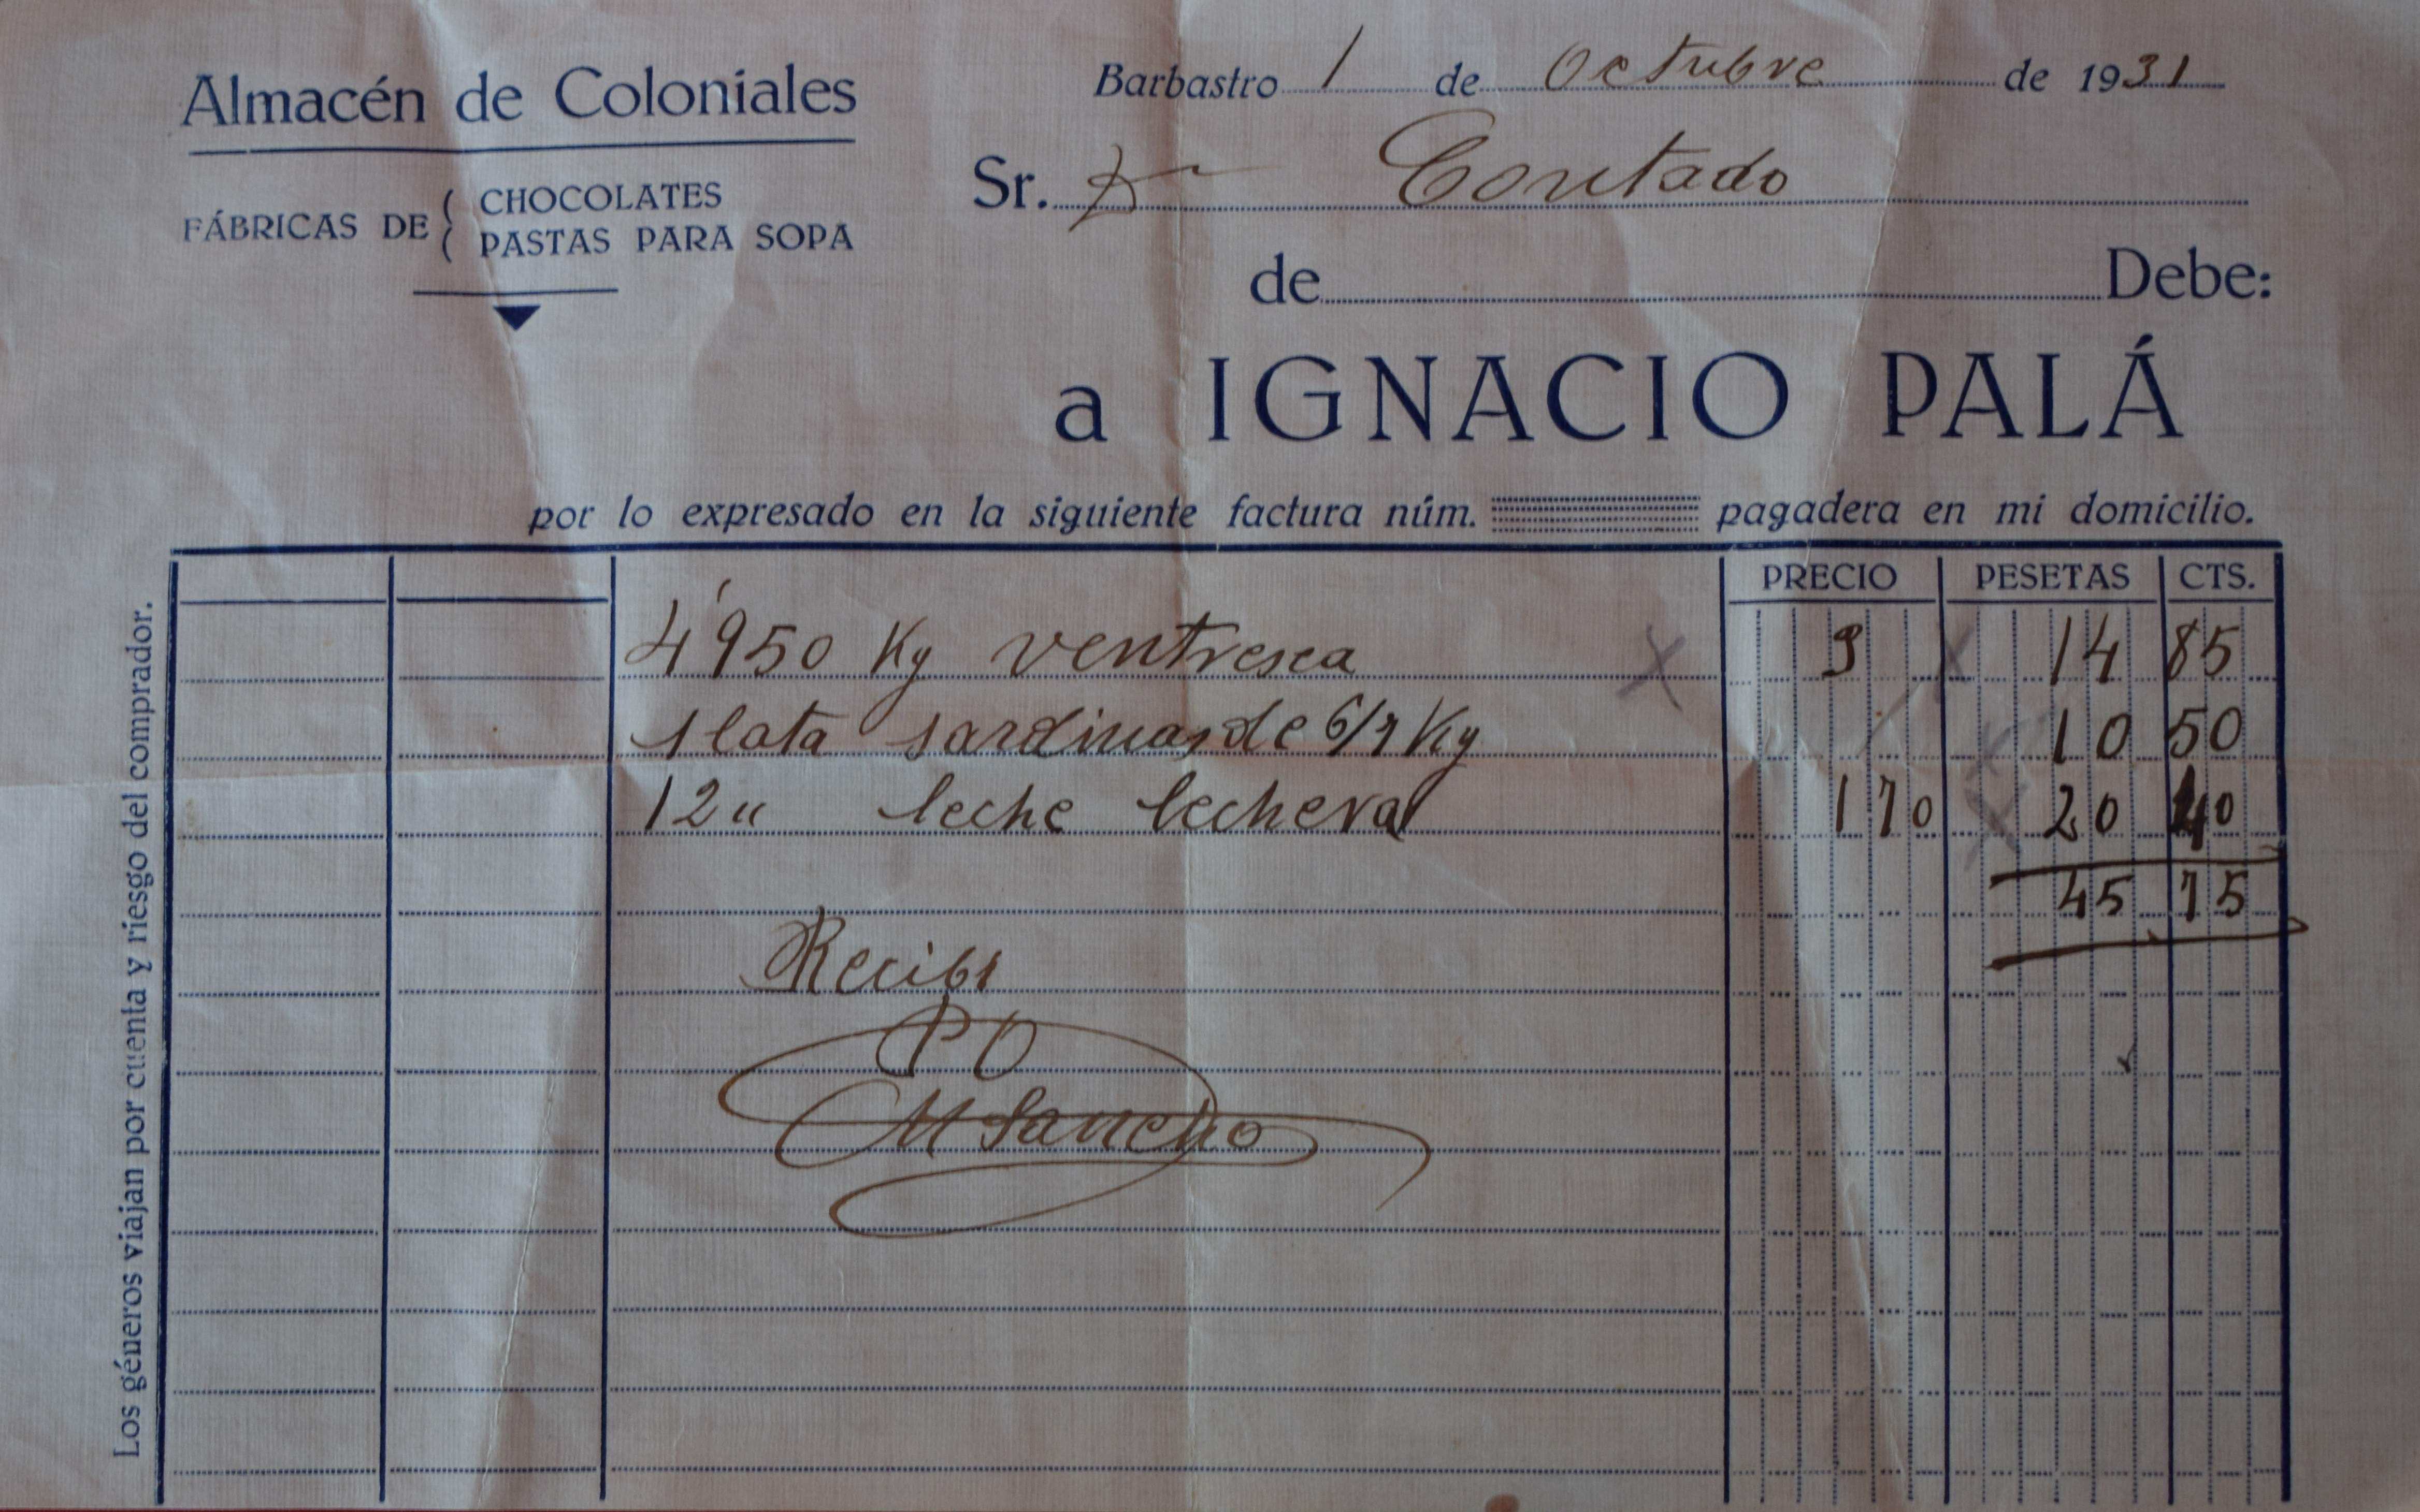 Almacén de Coloniales
FÁBRICAS DE { CHOCOLATES
PASTAS PARA SOPA
Barbastro 1 de Octubre de 1931
Sr. Contado
de Debe:
a IGNACIO PALÁ
por lo expresado en la siguiente factura núm. pagadera en mi domicilio.
PRECIO PESETAS CTS.
4'950 Kg ventresca 3 14 85
1 lata sardinas de 6/7 Kg 10 50
12 " leche lechera 1 70 20 40
45 75
Recibi
PO
M Sancho
Los géneros viajan por cuenta y riesgo del comprador.